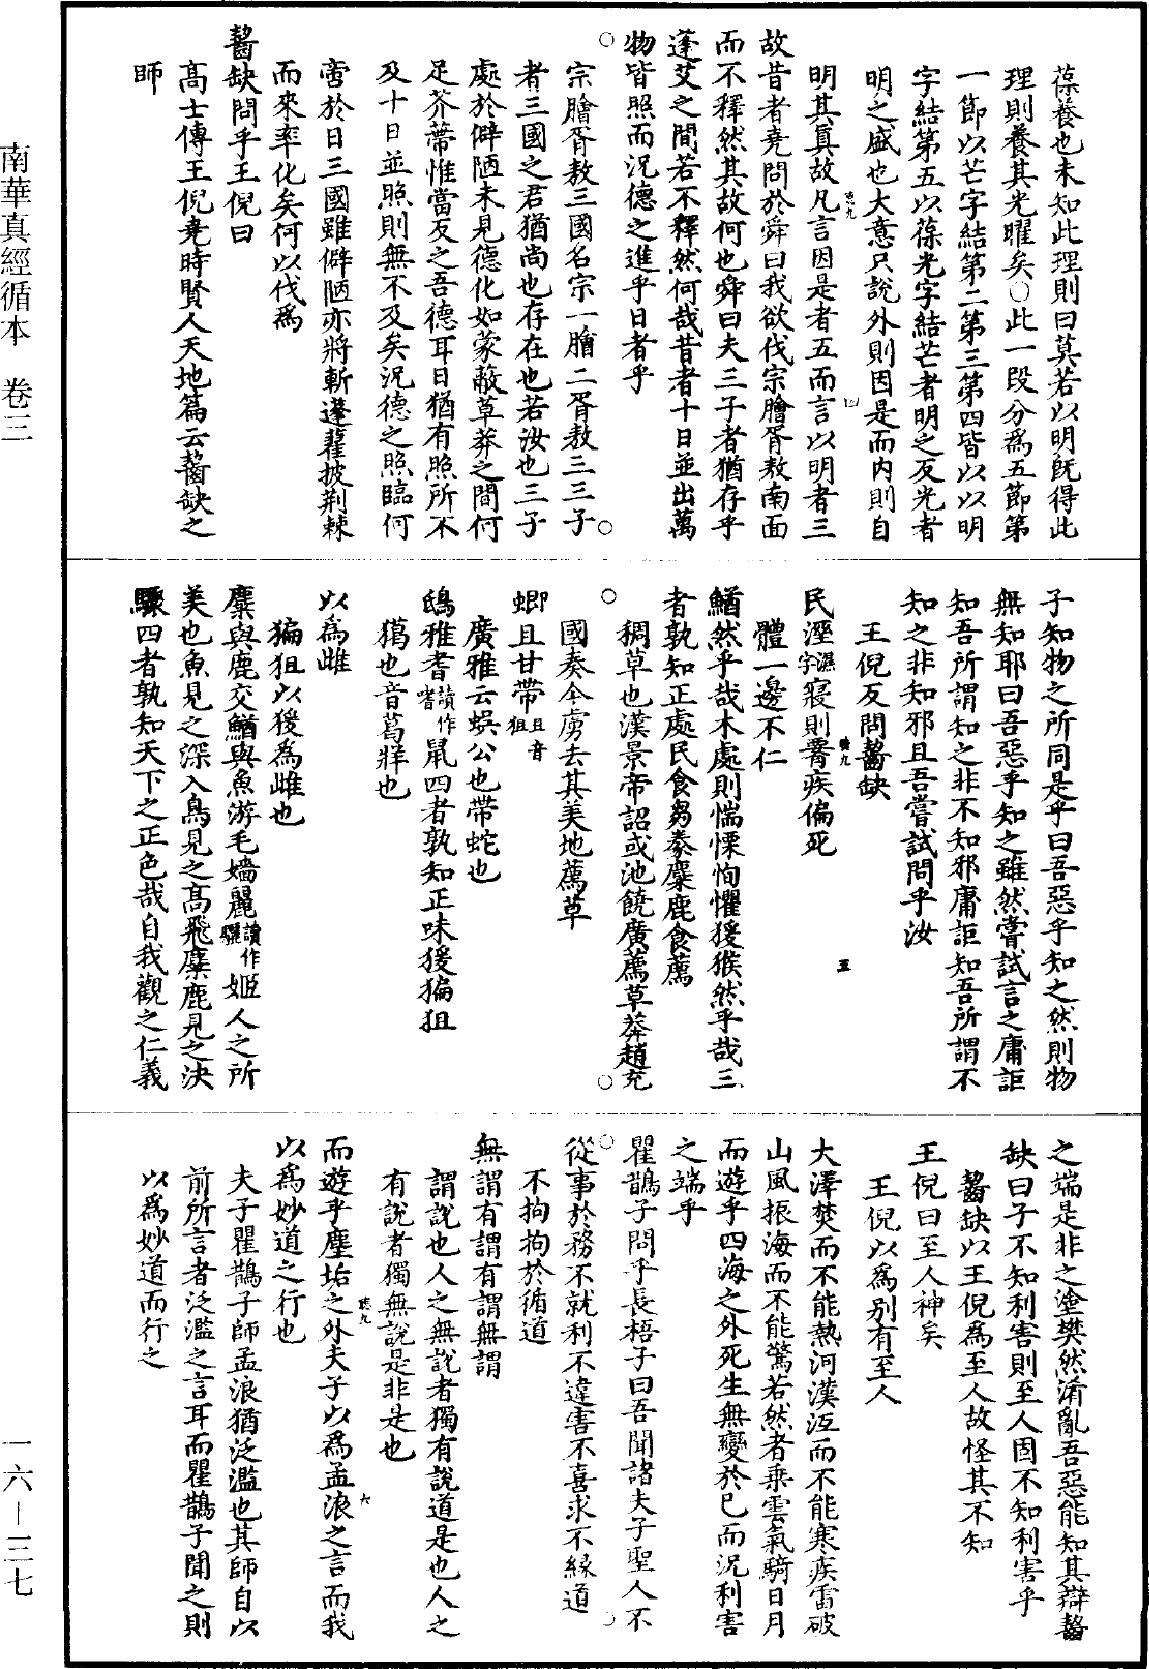 葆養也未知此理則曰莫若以明旣得此
理則養其光曜矣○此一段分爲五節第
一節以芒字結第二第三第四皆以以明
字結第五以葆光字結芒者明之反光者
明之盛也大意只說外則因是而内則自
明其眞故凡言因是者五而言以明者三
故昔者堯問於舜曰我欲伐宗膾胥敖南面
而不釋然其故何也舜曰夫三子者猶存乎
蓬艾之間若不釋然何哉昔者十日並出萬
物皆照而況德之進乎日者乎
宗膾胥敖三國名宗一膾二胥敖三三子
者三國之君猶尚也存在也若汝也三子
處於僻陋未見德化如蒙蔽草莽之間何
足芥蔕惟當反之吾德耳日猶有照所不
及十日並照則無不及矣況德之照臨何
啻於日三國雖僻陋亦將斬蓬藋披荆棘
而來率化矣何以伐爲
齧缺問乎王倪曰
高士傳王倪堯時賢人天地篇云齧缺之
師
子知物之所同是乎曰吾惡乎知之然則物
無知耶曰吾惡乎知之雖然嘗試言之庸詎
知吾所謂知之非不知邪庸詎知吾所謂不
知之非知邪且吾嘗試問乎汝
王倪反問齧缺
民溼濕字寢則䯪疾偏死
體一邊不仁
鰌然乎哉木處則惴慄恂懼猨猴然乎哉三
者孰知正處民食芻豢麋鹿食薦
稠草也漢景帝詔或池饒廣薦草莽趙充
國奏今虜去其美地薦草
蝍且甘帶且音狙
廣雅云蜈公也帶蛇也
鴟雅耆讀作嗜鼠四者孰知正味猨猵狙
獦也音葛牂也
以爲雌
猵狙以猨爲雌也
麋與鹿交鰌與魚游毛嬙麗讀作驪姬人之所
美也魚見之深入鳥見之高飛麋鹿見之決
驟四者孰知天下之正色哉自我觀之仁義
之端是非之塗樊然淆亂吾惡能知其辯齧
缺曰子不知利害則至人固不知利害乎
齧缺以王倪爲至人故怪其不知
王倪曰至人神矣
王倪以爲別有至人
大澤焚而不能熱河漢沍而不能寒疾雷破
山風振海而不能驚若然者乘雲氣騎日月
而遊乎四海之外死生無變於已而況利害
之端乎
瞿鵲子問乎長梧子曰吾聞諸夫子聖人不
從事於務不就利不違害不喜求不緣道
不拘拘於循道
無謂有謂有謂無謂
謂說也人之無說者獨有說道是也人之
有說者獨無說是非是也
而遊乎塵垢之外夫子以爲孟浪之言而我
以爲妙道之行也
夫子瞿鵲子師孟浪猶泛濫也其師自以
前所言者泛濫之言耳而瞿鵲子聞之則
以爲妙道而行之
南華真經循本　卷三
一六—三七